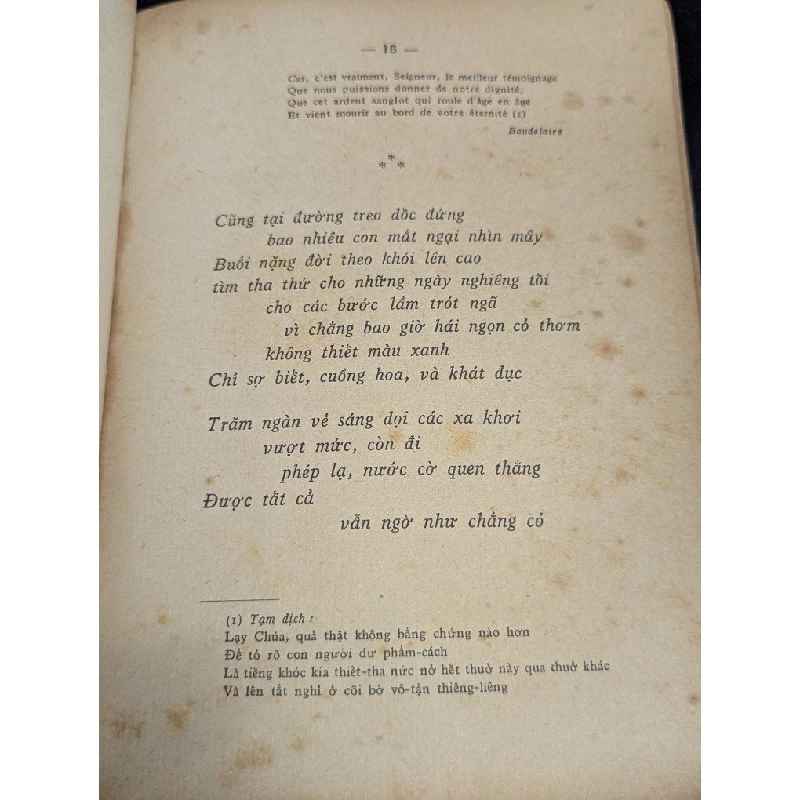 — 16 —
Car, c'est vraiment, Seigneur, le meilleur témoignage
Que nous puissions donner de notre dignité,
Que cet ardent sanglot qui roule d'âge en âge
Et vient mourir au bord de votre éternité (1)
Baudelaire
***
Cũng tại đường treo dốc đứng
bao nhiêu con mắt ngại nhìn mây
Buổi nặng đời theo khói lên cao
tìm tha thứ cho những ngày nghiêng tối
cho các bước lầm trót ngã
vì chẳng bao giờ hái ngọn cỏ thơm
không thiết màu xanh
Chỉ sợ biết, cuồng hoa, và khát dục
Trăm ngàn vẻ sáng dọi các xa khơi
vượt mức, còn đi
phép lạ, nước cờ quen thắng
Được tất cả
vẫn ngờ như chẳng có
(1) Tạm dịch :
Lạy Chúa, quả thật không bằng chứng nào hơn
Để tỏ rõ con người dư phẩm-cách
Là tiếng khóc kia thiết-tha nức nở hết thuở này qua thuở khác
Và lên tắt nghỉ ở cõi bờ vô-tận thiêng-liêng